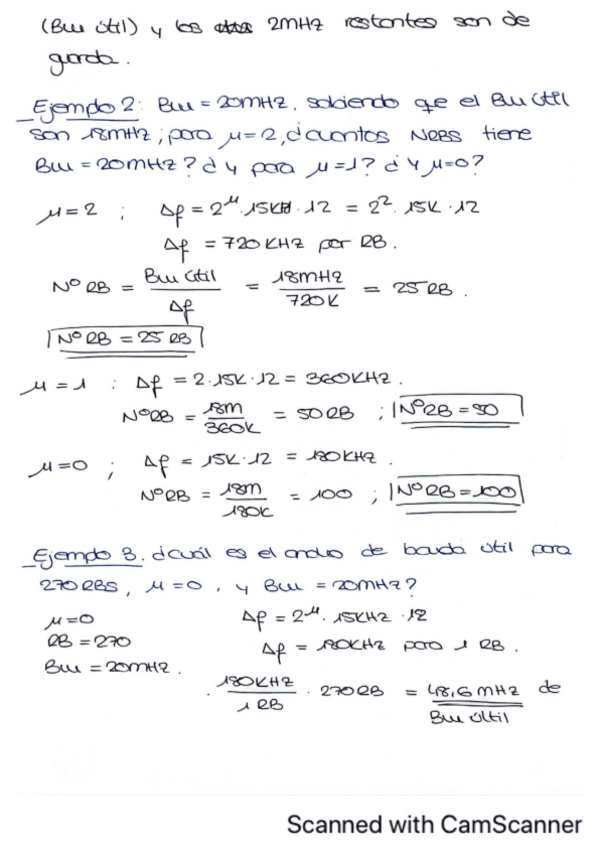 (Bw útil) y los 2MHz restantes son de
guarda.
Ejemplo 2: Bw = 20MHz, sabiendo que el Bw útil
son 18MHz; para μ=2, ¿cuántos NRBs tiene
Bw = 20MHz? ¿y para μ=1? ¿Y μ=0?
μ=2 ; Δf = 2^μ · 15KHz · 12 = 2² · 15K · 12
Δf = 720 KHz por RB.
Nº RB = Bw útil / Δf = 18MHz / 720K = 25 RB.
Nº RB = 25 RB
μ=1 ; Δf = 2·15K·12 = 360KHz.
NºRB = 18M / 360K = 50RB ; NºRB = 50
μ=0 ; Δf = 15K·12 = 180KHz.
NºRB = 18M / 180K = 100 ; NºRB = 100
Ejemplo 3. ¿cuál es el ancho de banda útil para
270RBs, μ=0, y Bw = 20MHz?
μ=0 Δf = 2^μ · 15KHz · 12
RB = 270 Δf = 180KHz para 1 RB.
Bw = 20MHz.
180KHz / 1 RB · 270RB = 48,6 MHz de
Bw últil
Scanned with CamScanner